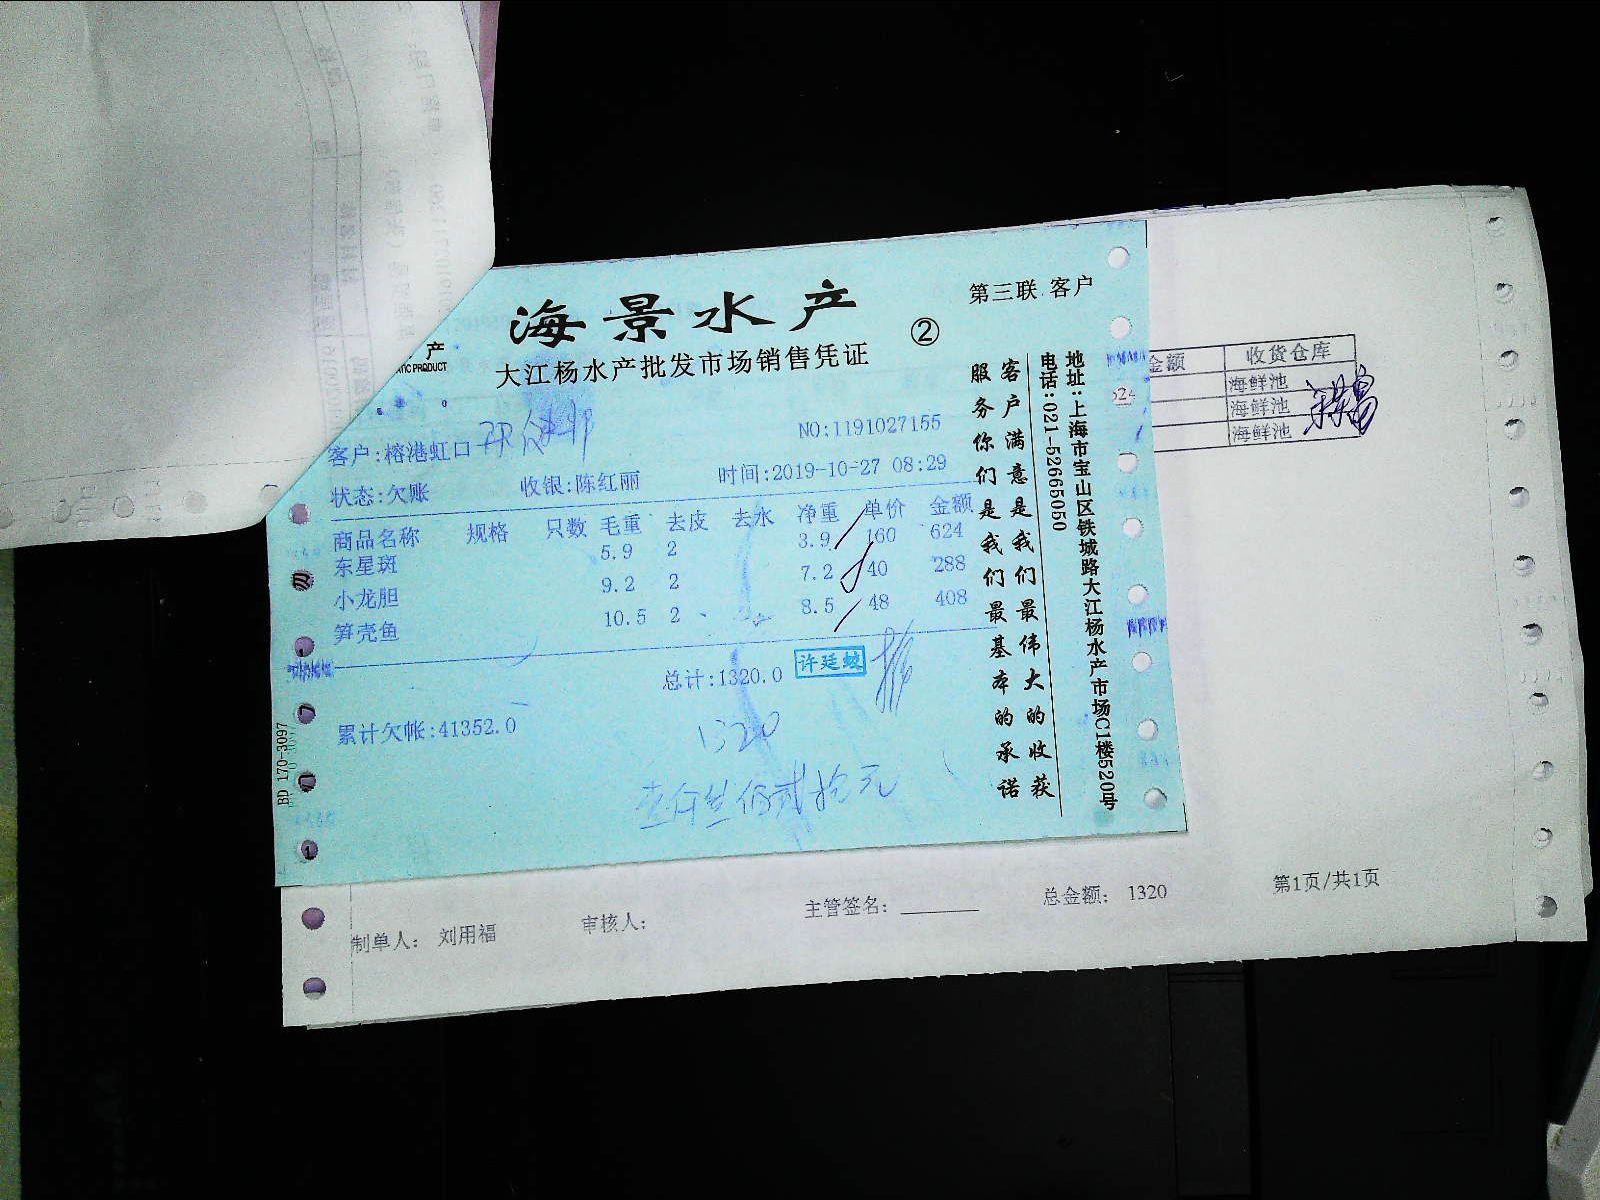 海景水产
第三联 客户
②
产
TIC PRODUCT
大江杨水产批发市场销售凭证
客户:榕港虹口
NO:1191027155
状态:欠账 收银:陈红丽 时间:2019-10-27 08:29
商品名称 规格 只数 毛重 去皮 去水 净重 单价 金额
东星斑 5.9 2 3.9 160 624
小龙胆 9.2 2 7.2 40 288
笋壳鱼 10.5 2 8.5 48 408
总计:1320.0 许廷蛟
累计欠帐:41352.0
1320
壹仟叁佰贰拾元
BD 170-3097
客户满意是我们最伟大的收获
服务你们是我们最基本的承诺
地址:上海市宝山区铁城路大江杨水产市场C1楼520号
电话:021-52665050
金额 收货仓库
海鲜池
海鲜池
海鲜池
制单人: 刘用福 审核人: 主管签名: 总金额: 1320 第1页/共1页